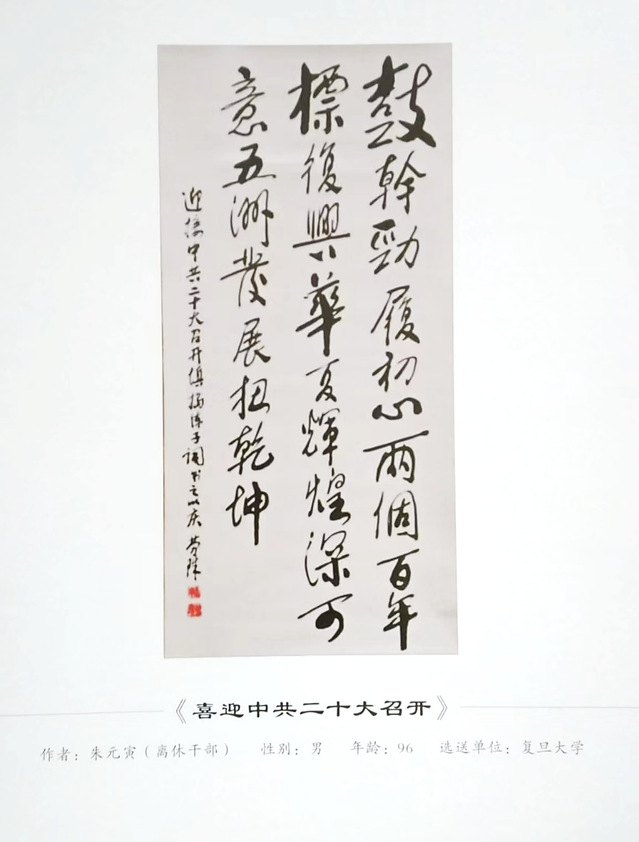 鼓幹勁履初心兩個百年
標復興華夏輝煌深可
意五洲發展扭乾坤
迎接中共二十大召开填捣练子词书之以庆
《喜迎中共二十大召开》
作者：朱元寅（离休干部） 性别：男 年龄：96 选送单位：复旦大学